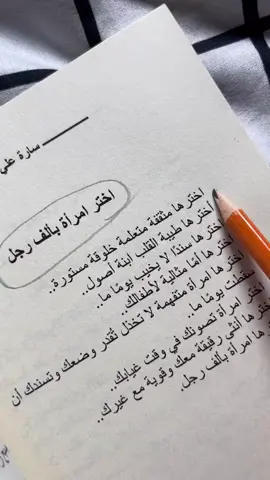 سارة علي
اختر امرأة بألف رجل
اخترها مثقفة متعلمة خلوقة مستورة..
اخترها طيبة القلب ابنة اصول..
اخترها سندًا لا يخيب يومًا ما..
اخترها أمًا مثالية لأطفالك..
اخترها امرأة متفهمة لا تختل تُقدر وضعك وتسندك أن
سقطت يومًا ما..
اختر امرأة تصونك في وقت غيابك..
اخترها أنثى رقيقة معك وقوية مع غيرك..
امرأة بألف رجل.